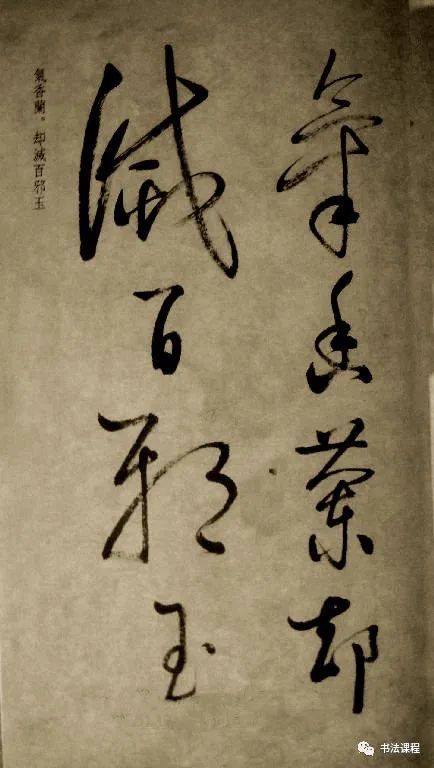 氣香蘭却
滅百邪玉
氣香蘭。却滅百邪玉
书法课程